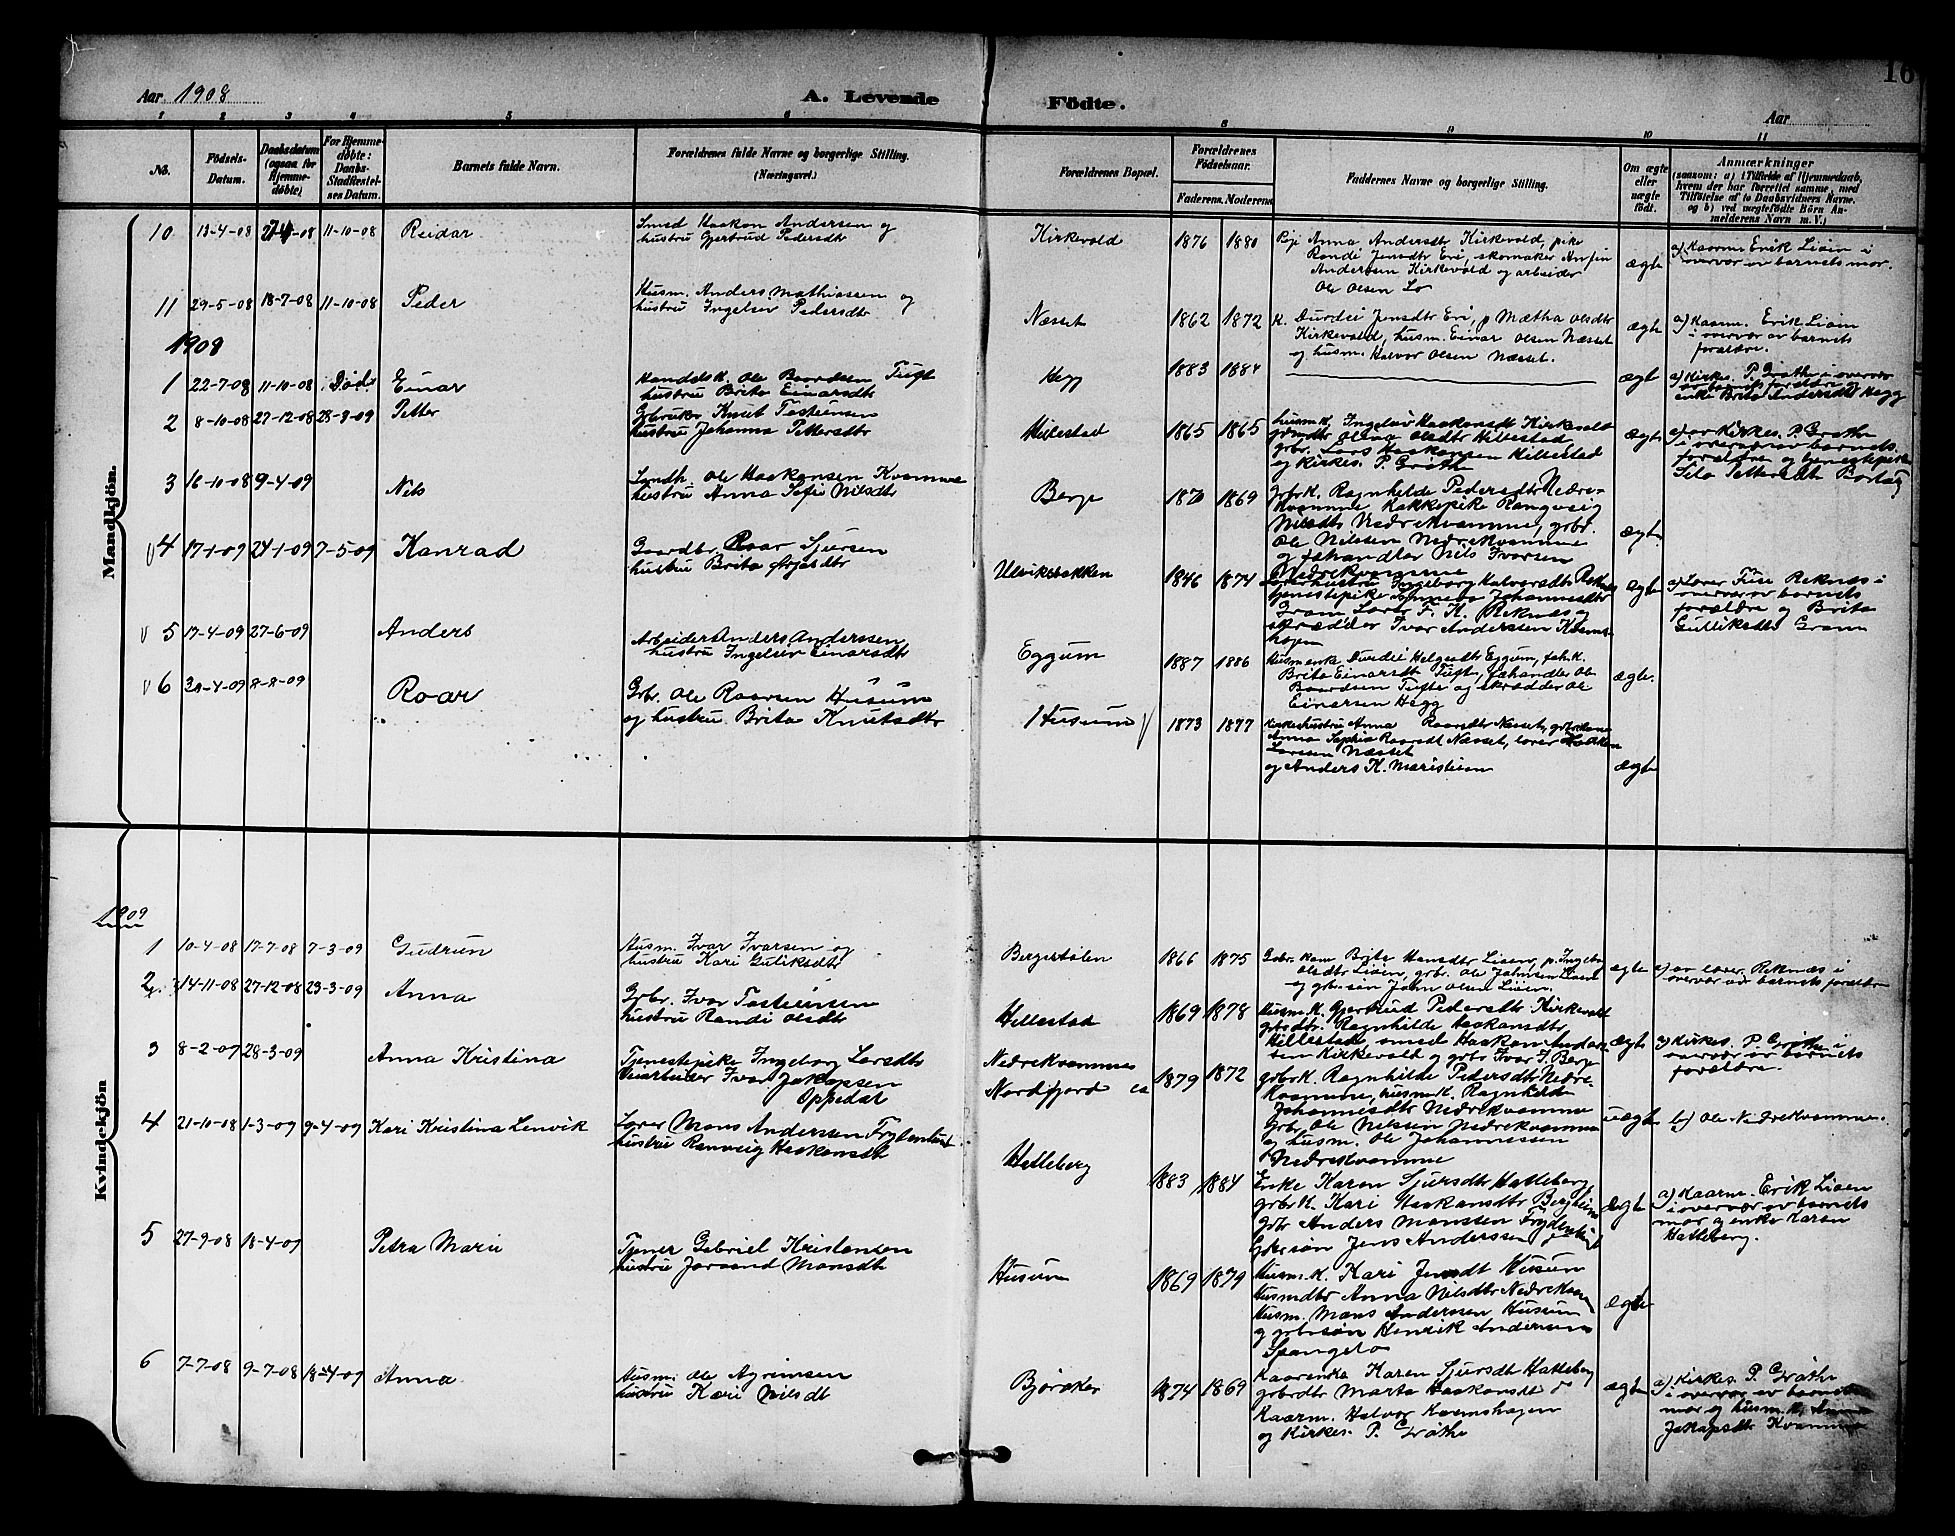 16
Aar 1908
A. Levende Födte.
Aar
1 2 3 4 5 6 8 9 10 11
No.
Födsels-Datum.
Daabsdatum (ogsaa for Hjemmedöbte).
For Hjemmedöbte: Daabs-Stadfæstelses Datum.
Barnets fulde Navn.
Forældrenes fulde Navne og borgerlige Stilling. (Næringsvei.)
Forældrenes Bopæl.
Forældrenes Födselsaar.
Faderens. Moderens.
Faddernes Navne og borgerlige Stilling.
Om ægte eller uægte födt.
Anmærkninger
(saasom: a) i Tilfælde af Hjemmedaab, hvem der har forrettet samme, med Tilföielse af to Daabsvidners Navne, og b) ved uægtefödte Börn Anmelderens Navn m. V.)
Mandkjön.
10 13-4-08 11-10-08 Reidar
Smed Haakon Andersen og
hustru Gjertrud Pedersdtr
Kirkevold 1876 1880
Anna Andersdtr Kirkevold, pike
Randi Jensdtr Eri, skomaker Anfin
Andersen Kirkevold og arbeider
Ole Olsen Lo
ægte
a) Kaarm. Erik Liøin i
overvær av barnets mor.
11 29-5-08 18-7-08 11-10-08 Peder
Husm. Anders Mathiassen og
hustru Ingeleiv Pedersdtr
Næsset 1862 1872
K. Durdei Jensdtr Eri, p Mætha Olsdtr
Kirkevold, husm. Einar Olsen Næsset
og husm. Halvor Olsen Næsset.
ægte
a) Kaarm. Erik Liøin
i overvær av barnets
forældre.
1909
1 22-7-08 11-10-08 Död Einar
Handelsk. Ole Baardsen Tuft
hustru Brita Einarsdtr
Hegg 1883 1884
ægt
a) Kirkes. P. Grøthe i overvær
av barnets forældre og
enke Brita Andersdtr Hegg
2 8-10-08 27-12-08 28-3-09 Petter
Grbruker Knut Tosteinsen
hustru Johanna Pettersdtr
Hillestad 1865 1865
husm.k. Ingeleiv Haakonsdt Kirkevold
grmdtr Olina Olsdtr Hillestad
grbr. Lars Haakonsen Hillestad
og Kirkes. P. Grøthe
ægte
a) av Kirkes. P. Grøthe
i overvær av barnets
forældre og tjenestepike
Sila Pettersdtr
3 16-10-08 9-4-09 Nils
Landh. Ole Haakonsen Kvamme
hustru Anna Sofie Nilsdtr
Berge 1870 1869
grbr.k. Ragnhilde Pedersdtr Nedre-
kvamme, kokkepike Rangveig
Nilsdtr Nedrekvamme, grbr.
Ole Nilssen Nedrekvamme
og fæhandler Nils Ivarsen
Nedrekvamme
ægte.
4 17-1-09 24-1-09 7-5-09 Konrad
Gaardbr. Roar Sjursen
hustru Brita
Ulviksbakken 1846 1874
Lærerhustru Ingeborg Halvorsdtr Reknes
tjenestepike Synneva Johannesdtr
Gram Lærer F. K. Reknes og
skrædder Ivar Anderssen Kaarms-
hagen
ægte
a) Lærer Füse Reknæs i
overvær av barnets
forældre og Brita
Gulliksdtr Gram
5 17-4-09 27-6-09 Anders
Arbeider Anders Anderssen
hustru Ingeleiv Einarsdtr
Eggum 1887 1886
Husm enke Durdei Helgesdtr Eggum, fæh.k.
Brita Einarsdt Tufte, fæhandler Ole
Baardsen Tufte og skrædder Ole
Einarsen Hegg
ægte.
6 8-8-09 Roar
Grbr. Ole Roarsen Husum
og hustru Brita Knutsdtr
Husum 1873 1877
Kirkehustru Anna Roarsdtr Næsset,
Anna Sophia Roarsdt Næsset, lærer Haakon
Larssen Næsset
og Anders K. Maristuen
ægte
Kvindekjön
1909
1 10-4-08 17-7-08 7-3-09 Gudrun
Husm. Ivar Ivarsen og
hustru Kari Guliksdtr
Bergestølen 1866 1875
Gbr. kone Brita Hansdtr Liøen, p. Ingebor
Olsdtr Liøen, grbr. Ole Johnsen Liøen
og grb. søn John Olsen Liøen.
ægte
a) av lærer Reknæs i
overvær av barnets forældre
2 14-11-08 27-12-08 23-3-09 Anna
Grbr. Ivar Tosteinsen
hustru Randi Olsdtr
Hillestad 1869 1878
Husm.k. Gjertrud Pedersdtr Kirkevold
grbrdtr. Ragnhilde Haakonsdtr
Hillestad, smed Haakon Ander-
sen Kirkevold og grbr Ivar J. Berge
ægte
a) Kirkes. P. Grøthe i
overvær av barnets
forældre.
3 8-2-09 28-3-09 Anna Kristina
Tjenestepike Ingeborg Larsdtr
Veiarbeider Ivar Jakopsen
Oppedal
Nedrekvamme
Nordfjord 1879 1872
grbr.k. Ragnhilde Pedersdtr Nedre-
kvamme, husm.k. Ragnhilde
Johannesdtr Nedrekvamme
Grbr. Ole Nilssen Nedrekvamme
og husm. Ole Johannessen
Nedrekvamme
uægte
b) Ole Nedrekvamme.
4 21-10-08 1-3-09 9-4-09 Kari Kristina Lenvik
Lærer Mons Anderssen Frydenlund
hustru Ranveig Haakonsdt
Hatleberg 1883 1884
Enke Karen Sjursdt Hatleberg
grbr.k. Kari Haakonsdtr Bergheim
Grbr Anders Monssen Frydenlund
Gbr.søn Jens Anderssen
ægte
a) Kaarm. Erik Liøen
i overvær av barnets
mor og enke Karen
Hatleberg.
5 27-9-08 18-4-09 Petra Marie
Tjener Gabriel Kristensen
hustru Joraand Monsdtr
Husum 1869 1879
Husm.k. Kari Jensdt Husum
Husmdtr Anna Nilsdtr Nedrekvamme
Husm. Mons Anderssen Husum
og grbr.søn Henrik Anderssen
Spangelo
ægte
6 7-7-08 9-7-08 18-4-09 Anna
Husm. Ole Agrimsen
hustru Kari Nilsdt
Bjøraker 1874 1869
Kaarenke Karen Sjursdt Hatleberg
grbrdtr Marta Haakonsdt do
Kaarm. Halvor Kaarmshagen
og Kirkes. P. Grøthe
ægte
a) Kirkes. P. Grøthe
i overvær av barnets
mor og husm.k.
Jakopsdtr Kvamme